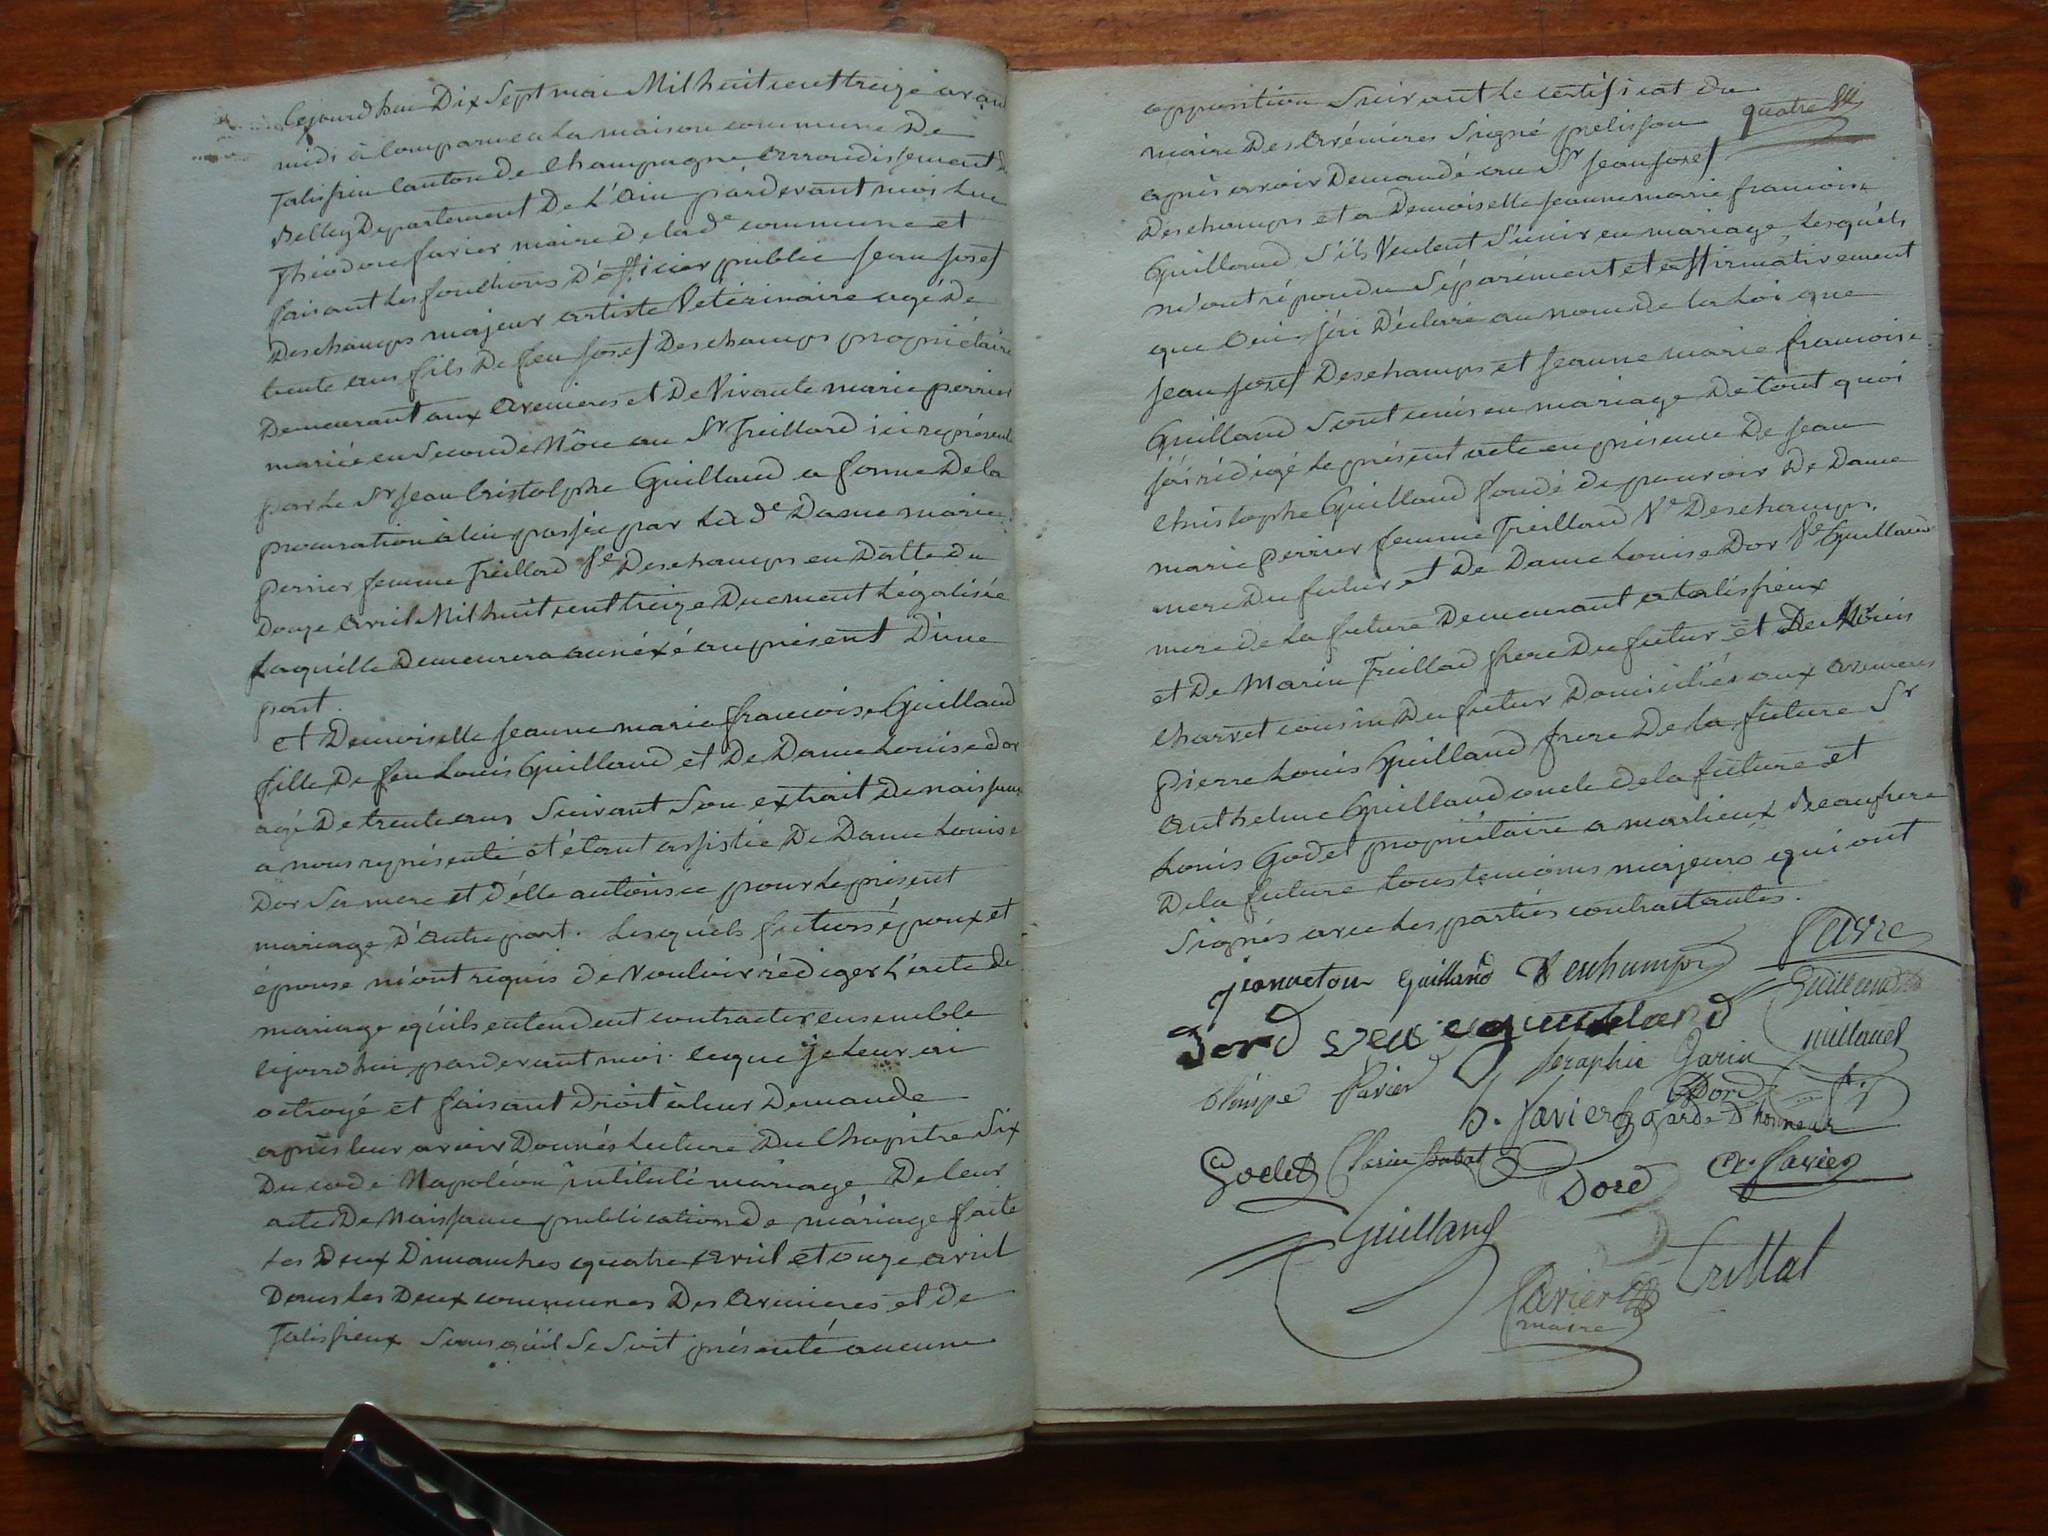 Cejourdhui Dix Sept mai Mil huit cent treize avant
midi à Comparu en la maison commune De
Talissieu Canton de Champagne arrondissement de
Belley Departement De L'Ain pardevant moi Luc
Théodore favier maire de lad.e commune et
faisant les fonctions D'officier public Jean Josef
Deschamps majeur artiste Vetérinaire agé de
trente ans fils De feu Josef Deschamps propriétaire
Demeurant aux avenieres et De Vivante marie perrier
mariée en Seconde Nôce au Sr Treillard ici représenté
par le Sr Jean Cristolphe Guilland a forme De la
procuration à lui passée par lad.e Dame marie
perrier femme Treillad Ve Deschamps en Datte du
Douze avril Mil huit cent treize Duement Légalisée
Laquélle Demeurera annéxé au présent D'une
part.
et Demoiselle Jeanne marie francoise Guilland
fille De feu Louis Guilland et De Dame Louise dor
agé De trente ans Suivant Son extrait De naissance
a nous représenté et étant assistée De Dame Louise
Dor Sa mere et d'élle autorisée pour le présent
mariage D'autre part. Lesquéls futurs époux et
épouse m'ont requis de Vouloir rédiger L'acte de
mariage qu'ils entendent contracter ensemble
cejourdhui pardevant moi. ce que je leur ai
octroyé et faisant Droit à leur Demande
après leur avoir Donnés Lecture Du Chapitre Six
Du code Napoléon intitulé mariage De leur
acte De Naissance publication De mariage faite
Les Deux Dimanches quatre avril et onze avril
Dans les Deux communes Des avenieres et de
Talissieux Sans qu'il Se Soit présenté aucune
opposition Suivant le certificat Du
quatre
maire Des avénieres Signé pelisson
après avoir Demandé au Sr Jean Josef
Deschamps et a Demoiselle Jeanne marie francoise
Guilland S'ils Veulent S'unir en mariage, Lesquéls
m'ont répondu Séparément et affirmativement
que Oui, j'ai Déclaré au nom de la Loi que
Jean Josef Deschamps et Jeanne marie francoise
Guilland Sont unis en mariage De tout quoi
j'ai rédigé le présent acte en présence De Jean
Christophe Guilland fondé de pouvoir De Dame
marie Perrier femme Treillad Ve Deschamps.
mere Du futur et De Dame Louise Dor Ve Guilland
mere de la future Demeurant a talissieux
et De Marin Treillad frere Du futur et De
Charvet cousin Du futur Domiciliés aux avenieres
Pierre Louis Guilland frere De la future Sr
Anthelme Guilland oncle de la future et
Louis Godet propriétaire a marlieux Beaufrere
De la future tous temoins majeurs qui ont
Signés avec les partiés contractantes.
jeanneton Guilland Deschamps favre
Dord veuve guilland Guilland
Séraphie Garin Guilland
Olimpe Favier Dord
Favier garde D'honneur
Godet Dord Favier
Guilland
Favier Trillat
maire